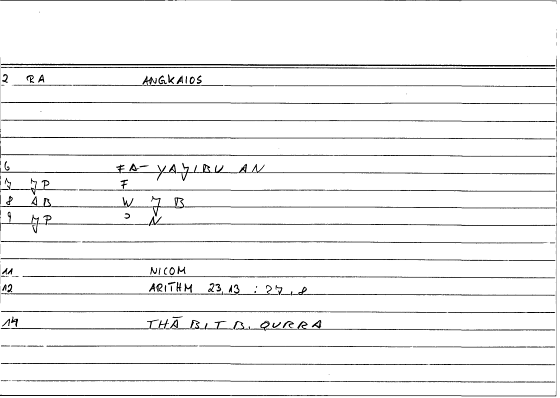 2 RA ANGKAIOS
6 FA- YAJIBU AN
7 JP F
8 AB W J B
9 JP ᵓ N
11 NICOM
12 ARITHM 23,13 :
14 THĀBIT B. QURRA